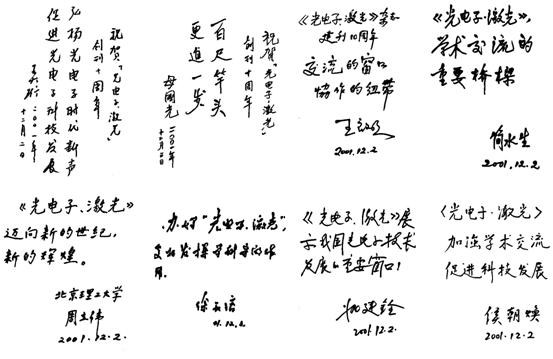 祝贺「光电子·激光」
创刊十周年
弘扬光电子时代新声
促进光电子科技发展
二〇〇一年
十二月二日
祝贺「光电子·激光」
创刊十周年
百尺竿头
更进一步
母国光
二〇〇一年
十二月二日
《光电子·激光》杂志
建刊10周年
交流的窗口
协作的纽带
王启明
2001.12.2
《光电子·激光》,
学术交流的
重要桥樑
简水生
2001.12.2
《光电子、激光》
迈向新的世纪,
新的辉煌。
北京理工大学
周立伟
2001.12.2.
办好"光电子·激光",
作
用.
01.12.2
《光电子、激光》展
示我国光电子技术
发展的重要窗口!
姚建铨
2001.12.2
〈光电子·激光〉
加强学术交流
促进科技发展
侯朝焕
2001.12.2